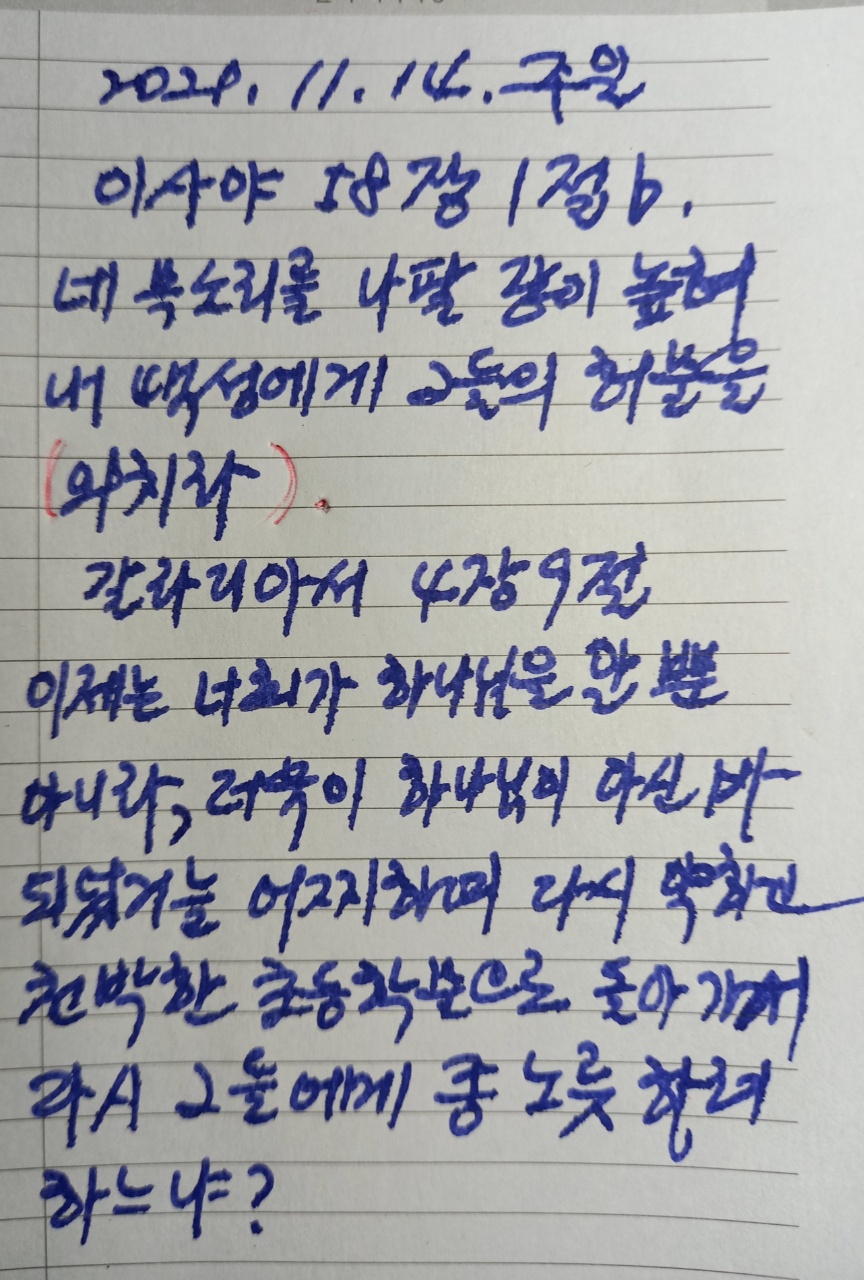 2021. 11. 14. 주일
이사야 58장 1절 b.
네 목소리를 나팔 같이 높혀
내 백성에게 그들의 허물을
(외치라).
갈라디아서 4장 9절
이제는 너희가 하나님을 알 뿐
아니라, 더욱이 하나님이 아신 바
되었거늘 어찌하며 다시 약하고
천박한 초등학문으로 돌아 가서
다시 그들에게 종 노릇 하려
하느냐?